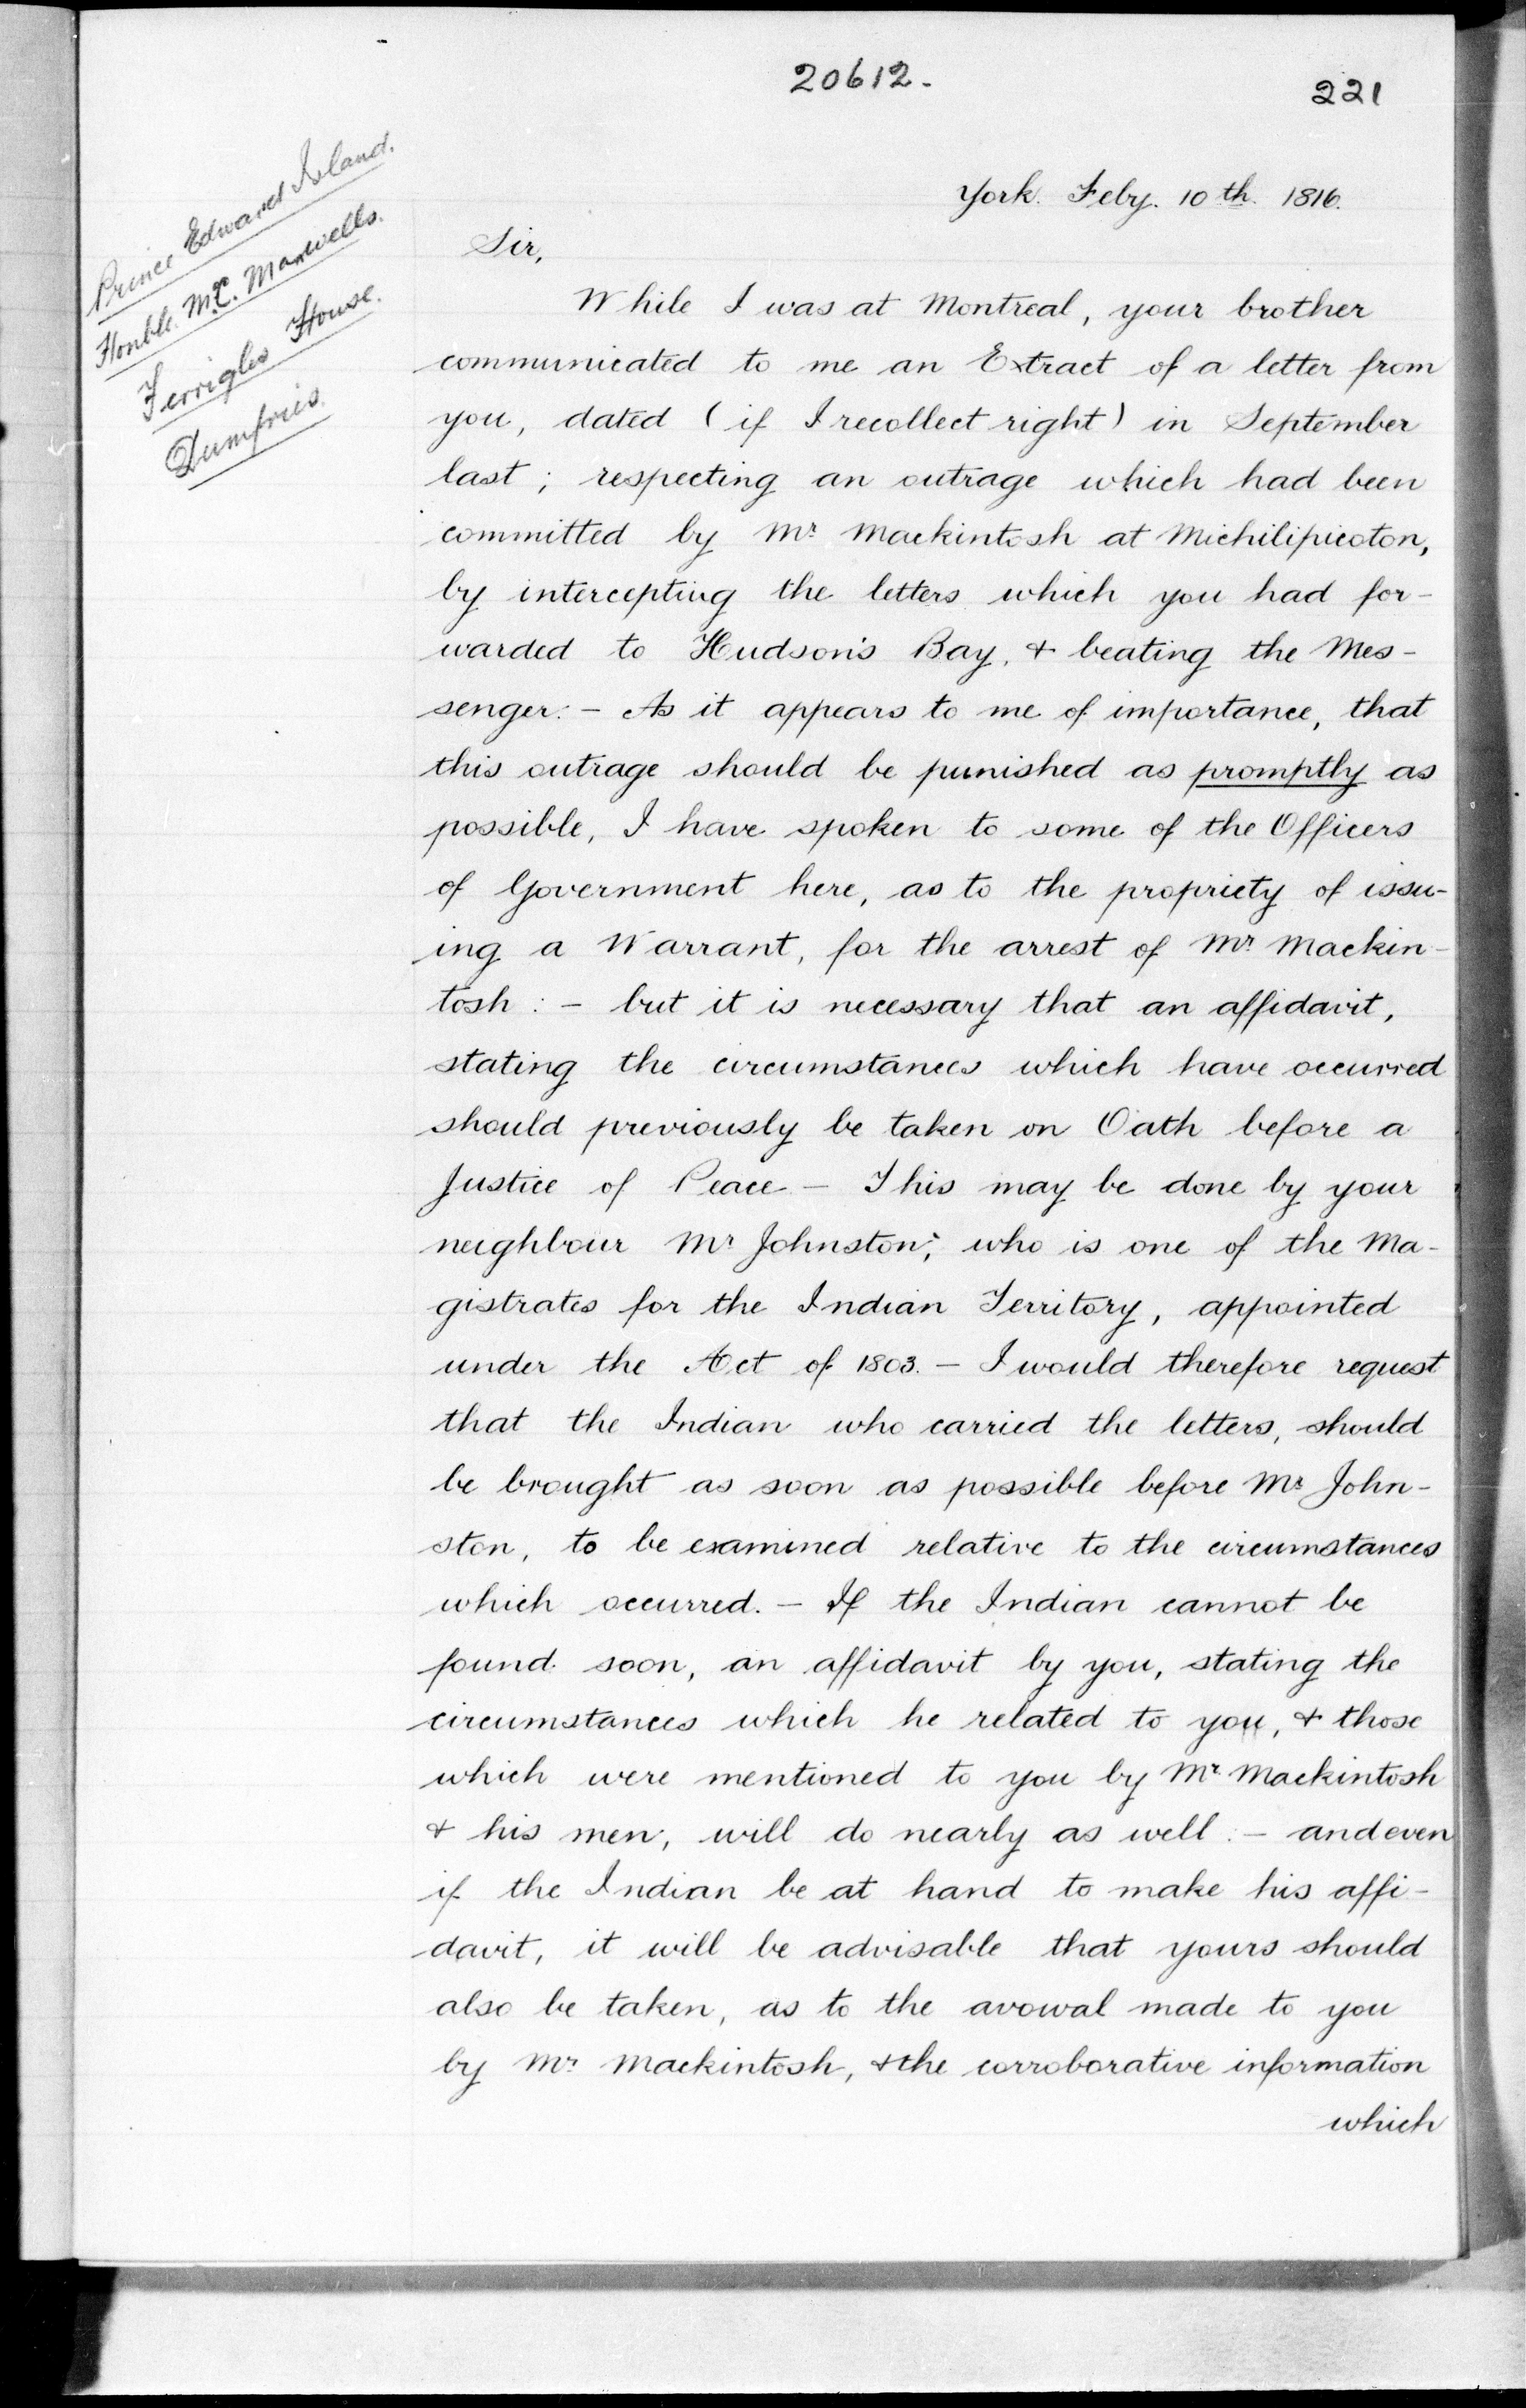 20612.
221
Prince Edward Island.
Honble. Mr. Maxwells.
Terrigles House.
Dumfries.
York. Feby. 10th. 1816.
Sir,
While I was at Montreal, your brother
communicated to me an Extract of a letter from
you, dated (if I recollect right) in September
last; respecting an outrage which had been
committed by Mr Mackintosh at Michilipicoton,
by intercepting the letters which you had for-
warded to Hudson's Bay, & beating the Mes-
senger: - As it appears to me of importance, that
this outrage should be punished as promptly as
possible, I have spoken to some of the Officers
of Government here, as to the propriety of issu-
ing a Warrant, for the arrest of Mr. Mackin-
tosh: - but it is necessary that an affidavit,
stating the circumstances which have occurred
should previously be taken on Oath before a
Justice of Peace - This may be done by your
neighbour Mr Johnston; who is one of the Ma-
gistrates for the Indian Territory, appointed
under the Act of 1803. - I would therefore request
that the Indian who carried the letters, should
be brought as soon as possible before Mr John-
ston, to be examined relative to the circumstances
which occurred. - If the Indian cannot be
found soon, an affidavit by you, stating the
circumstances which he related to you, & those
which were mentioned to you by Mr. Mackintosh
& his men, will do nearly as well: - and even
if the Indian be at hand to make his affi-
davit, it will be advisable that yours should
also be taken, as to the avowal made to you
by Mr Mackintosh, & the corroborative information
which